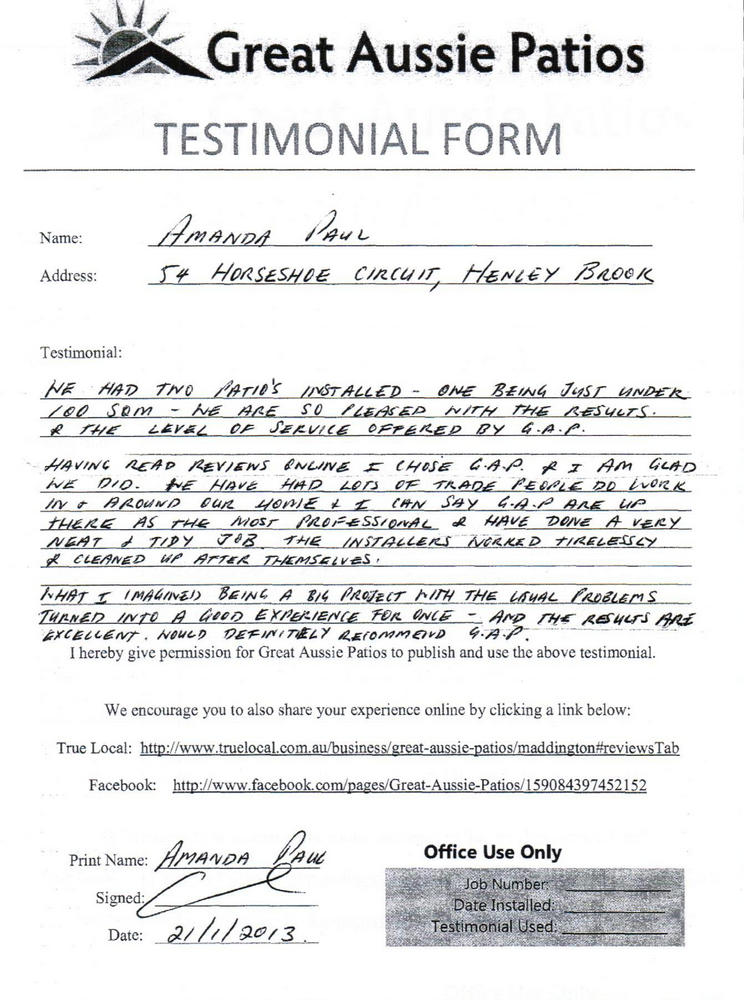 Great Aussie Patios
TESTIMONIAL FORM
Name: AMANDA PAUL
Address: 54 HORSESHOE CIRCUIT, HENLEY BROOK
Testimonial:
WE HAD TWO PATIO'S INSTALLED - ONE BEING JUST UNDER
100 SQM - WE ARE SO PLEASED WITH THE RESULTS.
& THE LEVEL OF SERVICE OFFERED BY G.A.P.
HAVING READ REVIEWS ONLINE I CHOSE G.A.P. & I AM GLAD
WE DID. WE HAVE HAD LOTS OF TRADE PEOPLE DO WORK
IN & AROUND OUR HOME & I CAN SAY G.A.P ARE UP
THERE AS THE MOST PROFESSIONAL & HAVE DONE A VERY
NEAT & TIDY JOB THE INSTALLERS WORKED TIRELESSLY
& CLEANED UP AFTER THEMSELVES.
WHAT I IMAGINED BEING A BIG PROJECT WITH THE USUAL PROBLEMS
TURNED INTO A GOOD EXPERIENCE FOR ONCE - AND THE RESULTS ARE
EXCELLENT. WOULD DEFINITELY RECOMMEND G.A.P.
I hereby give permission for Great Aussie Patios to publish and use the above testimonial.
We encourage you to also share your experience online by clicking a link below:
True Local: http://www.truelocal.com.au/business/great-aussie-patios/maddington#reviewsTab
Facebook: http://www.facebook.com/pages/Great-Aussie-Patios/159084397452152
Print Name: AMANDA PAUL
Signed:
Date: 21/1/2013.
Office Use Only
Job Number:
Date Installed:
Testimonial Used: